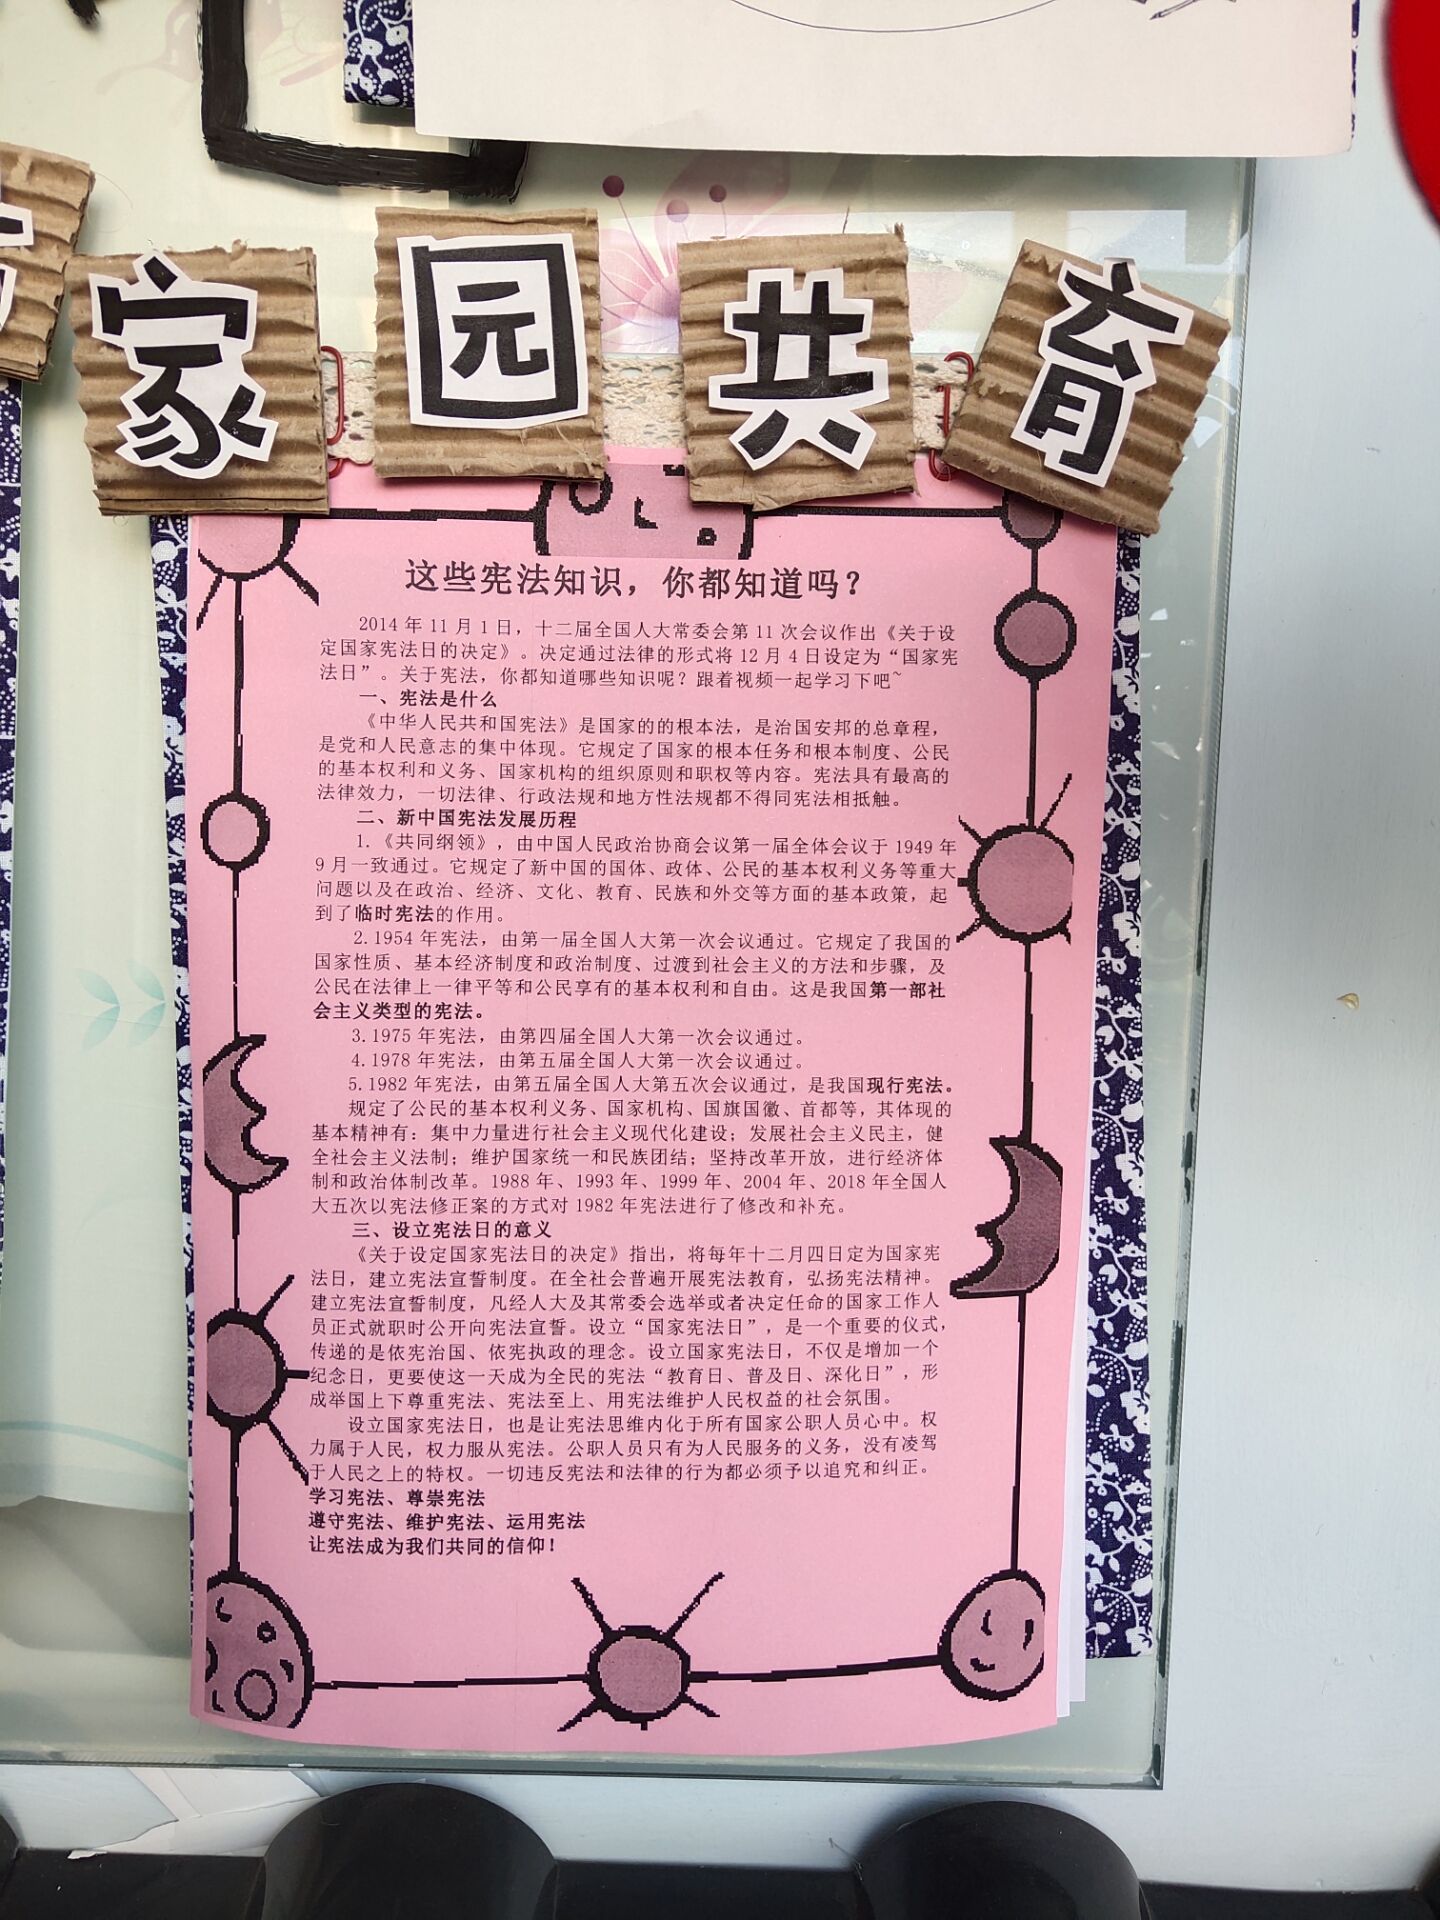 家园共育
这些宪法知识，你都知道吗？
2014年11月1日，十二届全国人大常委会第11次会议作出《关于设
定国家宪法日的决定》。决定通过法律的形式将12月4日设定为“国家宪
法日”。关于宪法，你都知道哪些知识呢？跟着视频一起学习下吧~
一、宪法是什么
《中华人民共和国宪法》是国家的的根本法，是治国安邦的总章程，
是党和人民意志的集中体现。它规定了国家的根本任务和根本制度、公民
的基本权利和义务、国家机构的组织原则和职权等内容。宪法具有最高的
法律效力，一切法律、行政法规和地方性法规都不得同宪法相抵触。
二、新中国宪法发展历程
1.《共同纲领》，由中国人民政治协商会议第一届全体会议于1949年
9月一致通过。它规定了新中国的国体、政体、公民的基本权利义务等重大
问题以及在政治、经济、文化、教育、民族和外交等方面的基本政策，起
到了临时宪法的作用。
2.1954年宪法，由第一届全国人大第一次会议通过。它规定了我国的
国家性质、基本经济制度和政治制度、过渡到社会主义的方法和步骤，及
公民在法律上一律平等和公民享有的基本权利和自由。这是我国第一部社
会主义类型的宪法。
3.1975年宪法，由第四届全国人大第一次会议通过。
4.1978年宪法，由第五届全国人大第一次会议通过。
5.1982年宪法，由第五届全国人大第五次会议通过，是我国现行宪法。
规定了公民的基本权利义务、国家机构、国旗国徽、首都等，其体现的
基本精神有：集中力量进行社会主义现代化建设；发展社会主义民主，健
全社会主义法制；维护国家统一和民族团结；坚持改革开放，进行经济体
制和政治体制改革。1988年、1993年、1999年、2004年、2018年全国人
大五次以宪法修正案的方式对1982年宪法进行了修改和补充。
三、设立宪法日的意义
《关于设定国家宪法日的决定》指出，将每年十二月四日定为国家宪
法日，建立宪法宣誓制度。在全社会普遍开展宪法教育，弘扬宪法精神。
建立宪法宣誓制度，凡经人大及其常委会选举或者决定任命的国家工作人
员正式就职时公开向宪法宣誓。设立“国家宪法日”，是一个重要的仪式，
传递的是依宪治国、依宪执政的理念。设立国家宪法日，不仅是增加一个
纪念日，更要使这一天成为全民的宪法“教育日、普及日、深化日”，形
成举国上下尊重宪法、宪法至上、用宪法维护人民权益的社会氛围。
设立国家宪法日，也是让宪法思维内化于所有国家公职人员心中。权
力属于人民，权力服从宪法。公职人员只有为人民服务的义务，没有凌驾
于人民之上的特权。一切违反宪法和法律的行为都必须予以追究和纠正。
学习宪法、尊崇宪法
遵守宪法、维护宪法、运用宪法
让宪法成为我们共同的信仰！